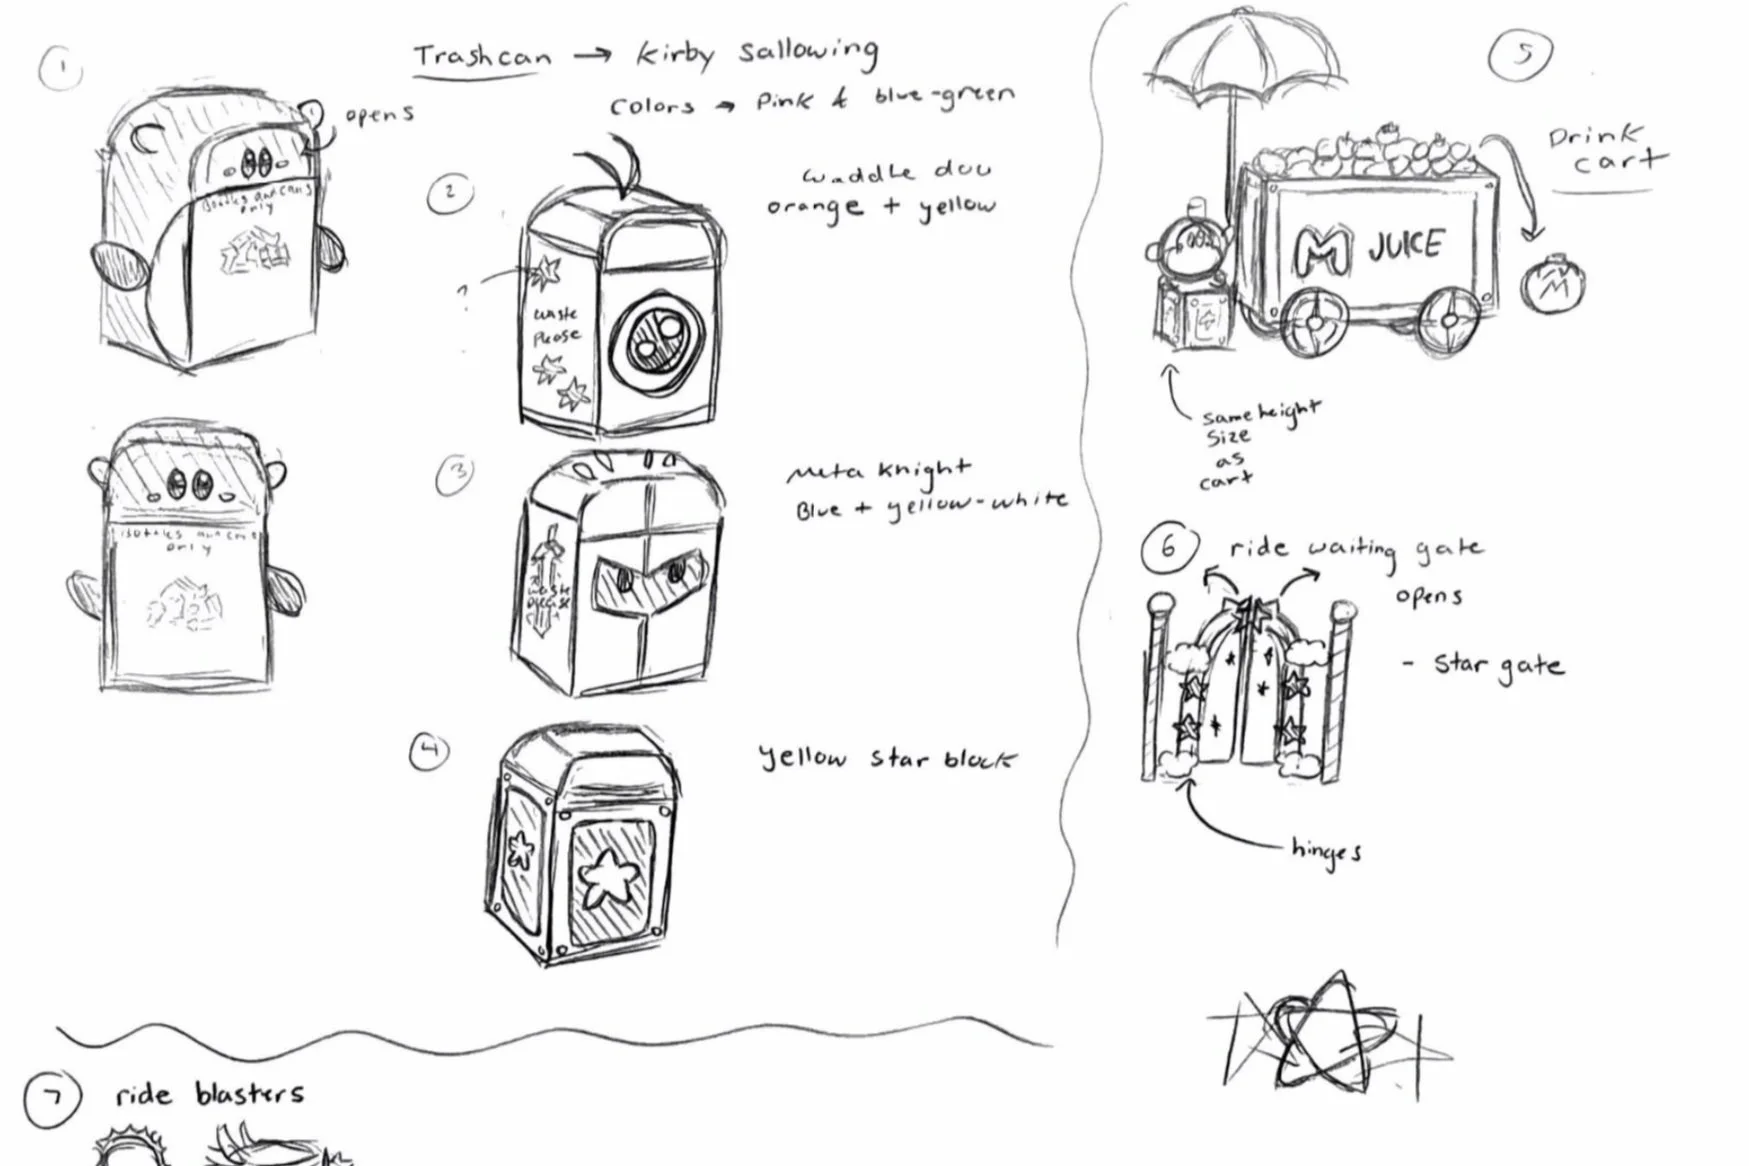 1
Trashcan → Kirby Sallowing
Colors → Pink & blue-green
opens
Bottles and cans
only
2
waddle doo
orange + yellow
?
waste
Please
Bottles and cans
only
3
Meta Knight
Blue + yellow-white
waste
please
4
Yellow star block
5
Drink
cart
M JUICE
M
same height
size
as
cart
6
ride waiting gate
opens
- Star gate
hinges
7
ride blasters